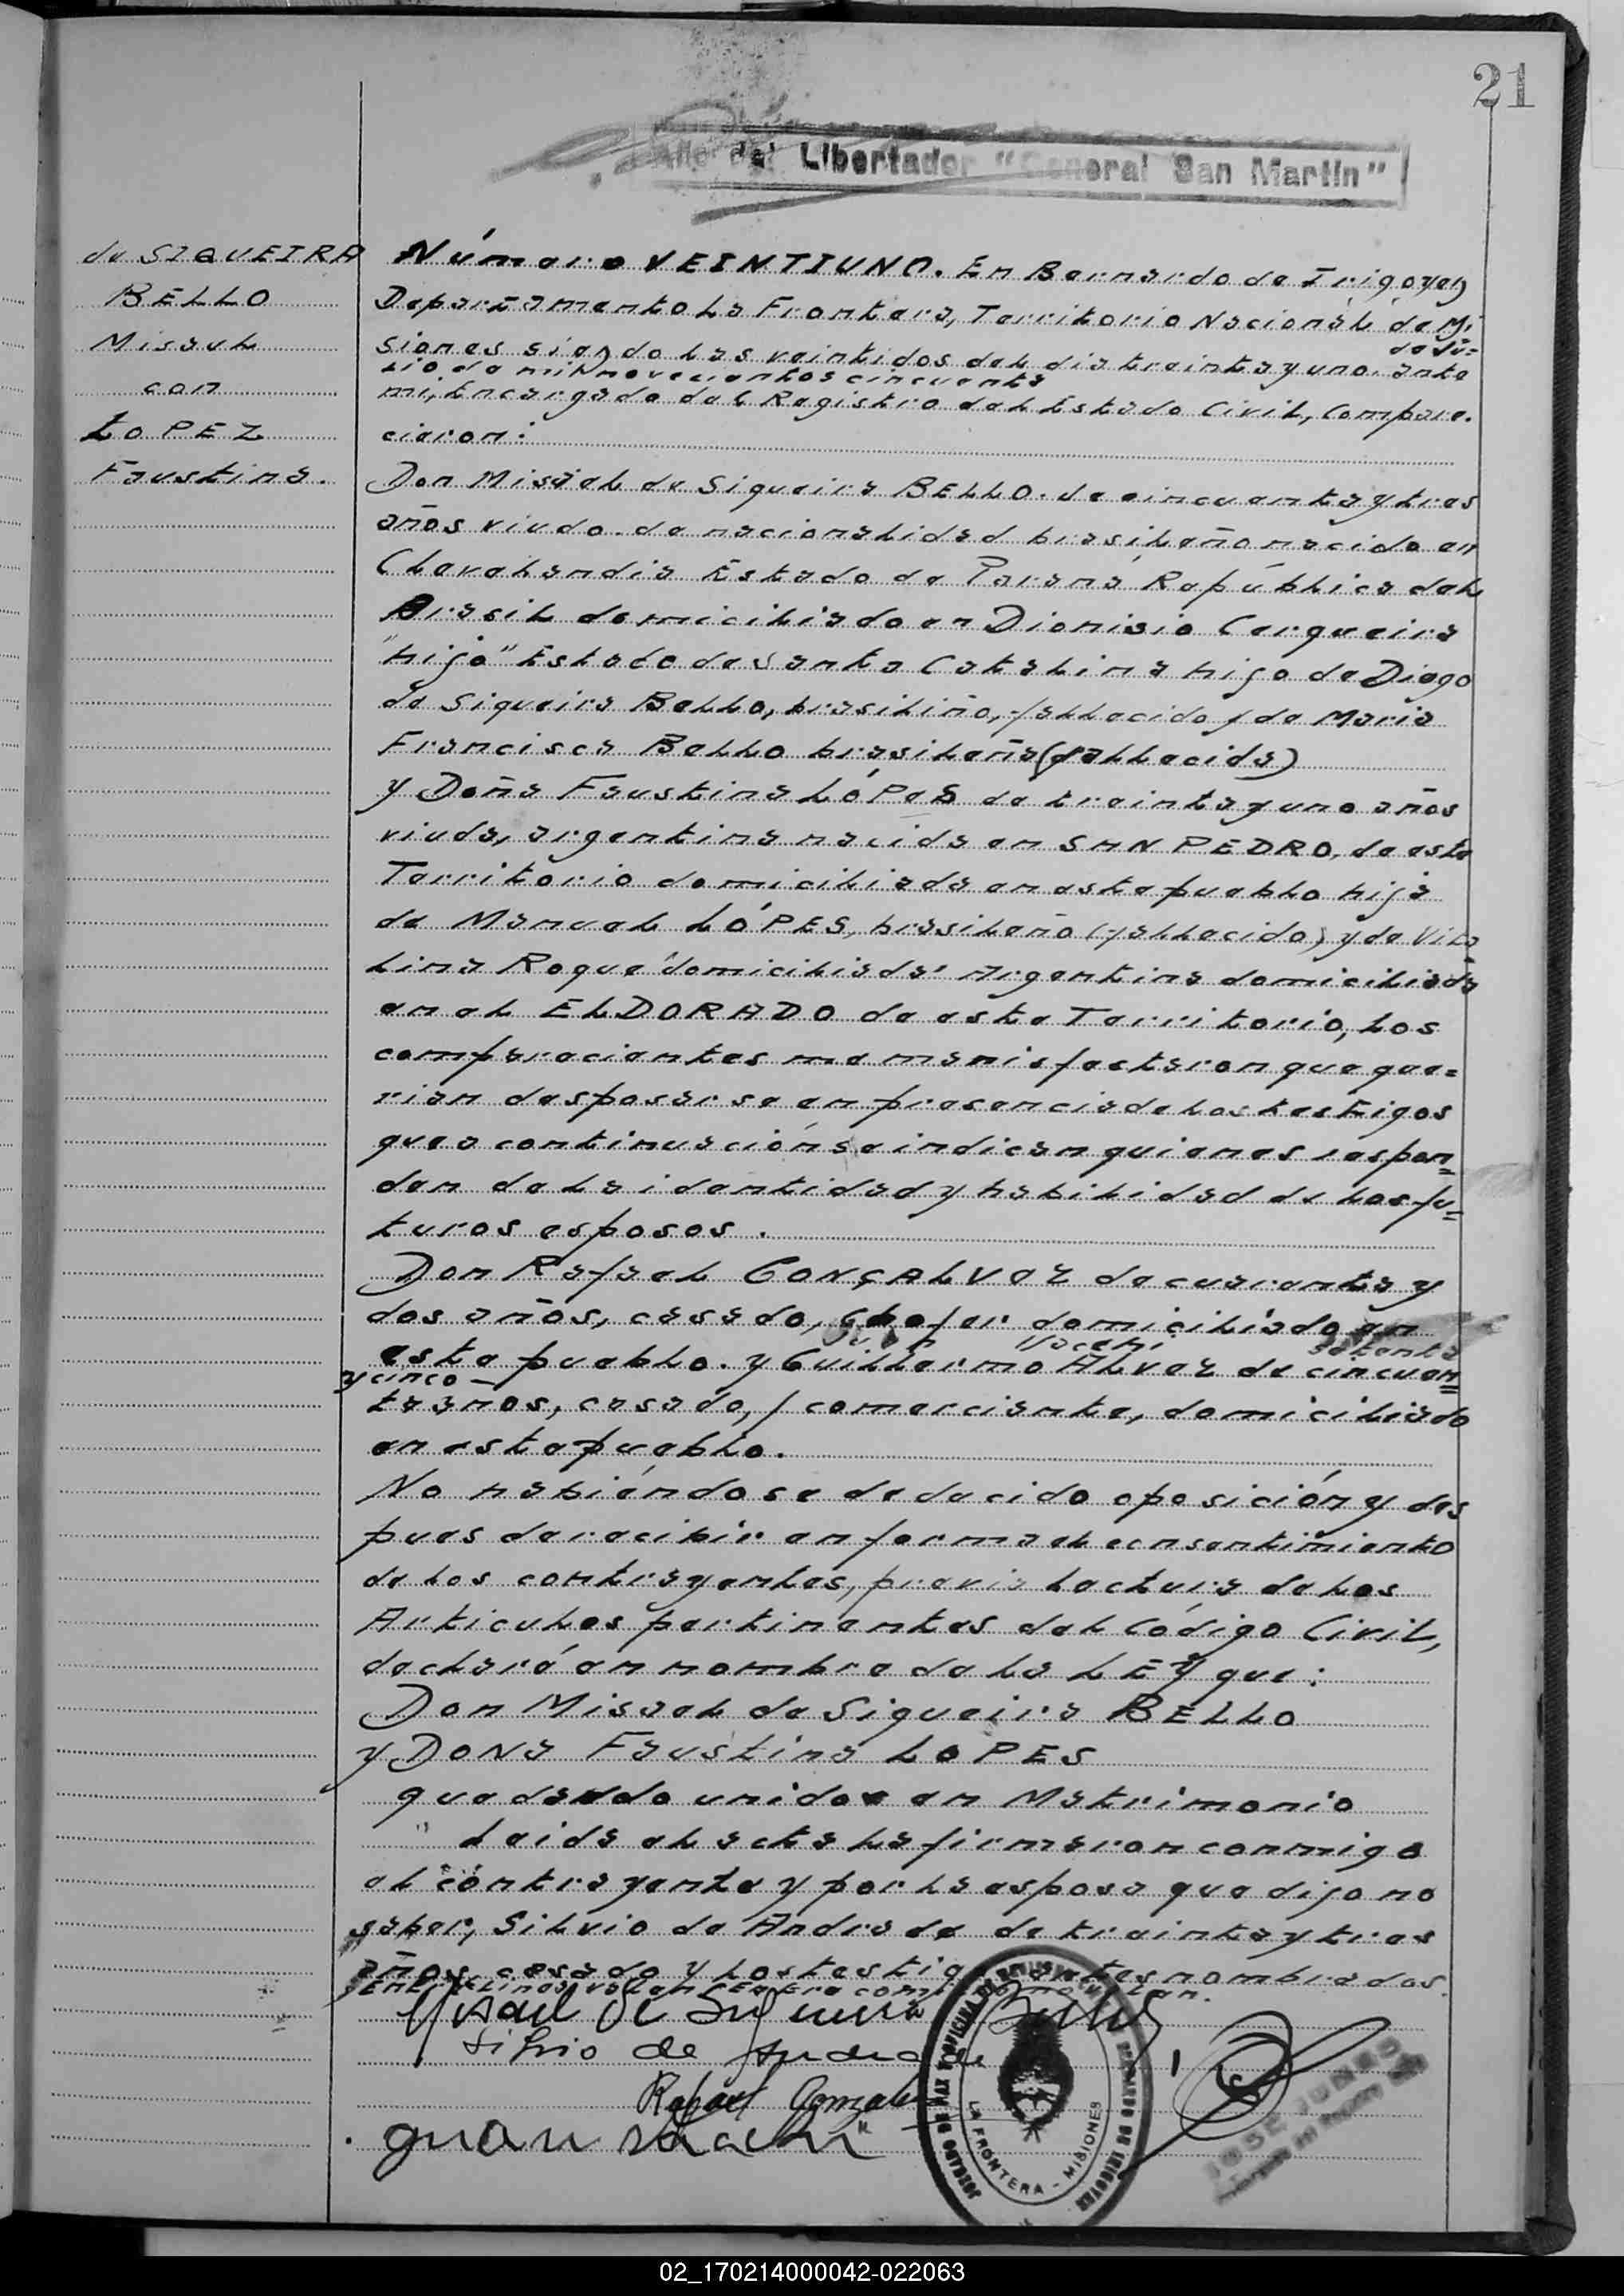 21
Año del Libertador "General San Martin"
de SIQUEIRA
BELLO
Misael
con
LOPEZ
Faustina.
Número VEINTIUNO. En Bernardo de Irigoyen
Departamento La Frontera, Territorio Nacional de Mi
siones siendo las veintidos del dia treinta y uno. ante
de Ju=
lio de mil novecientos cincuenta
mi, Encargado del Registro del Estado Civil, Compare.
cieron:
Don Misael de Siqueira BELLO. de cincuenta y tres
años viudo. de nacionalidad brasileño nacido en
Clevelandia Estado de Paraná República del
Brasil domiciliado en Dionisio Cerqueira
"hijo" Estado de Santa Catalina hijo de Diogo
de Siqueira Bello, brasiliño, fallecido y de Maria
Francisca Bello brasileña (fallecida)
y Doña Faustina LóPeS de treinta y uno años
viuda, argentina nacida en SAN PEDRO, de este
Territorio domiciliada en este pueblo hija
de Manuel LÓPES, brasileño (fallecido) y de Vita
lina Roque "domiciliada" Argentina domiciliada
en el ELDORADO de este Territorio, Los
comparecientes me manisfestaron que que=
rian desposarse en presencia de los testigos
que a continuación se indican quienes respon=
den de la identidad y habilidad de los fu=
turos esposos.
Don Rafael GONÇALVez de cuarenta y
dos años, casado, chofer domiciliado en
este pueblo. y Guillermo ALVez de cincuen=
setenta
y cinco
ta años, casado, / comerciante, domiciliado
en este pueblo.
No habiéndose deducido oposición y des
pues de recibir en forma el consentimiento
de los contrayentes, previa lectura de los
Articulos pertinentes del Código Civil,
declaré en nombre de la LEY que:
Don Misael de Siqueira BELLO
y DONa Faustina LOPES
quedando unidos en Matrimonio
Leida el acta la firmaron conmigo
el contrayente y por la esposa que dijo no
saber, Silvio de Andrade de treinta y tres
años casado y los testigos antes nombrados.
Misael de Siqueira Bello
Silvio de Andrade
Rafael Gonzale
Juan
LA FRONTERA - MISIONES
02_170214000042-022063